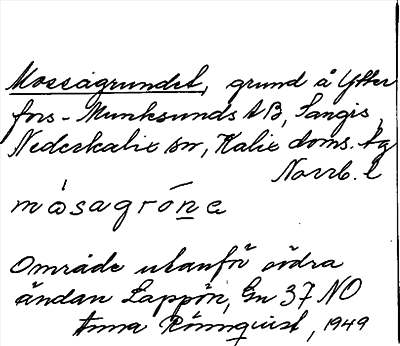 Mossågrundet, grund å Ytter
fors-Munksunds AB, Sangis,
Nederkalix sn, Kalix doms. tg
Norrb. l
måsagróne
Område utanför södra
ändan Lappön, Gn 37 NO
Anna Rönnquist, 1949